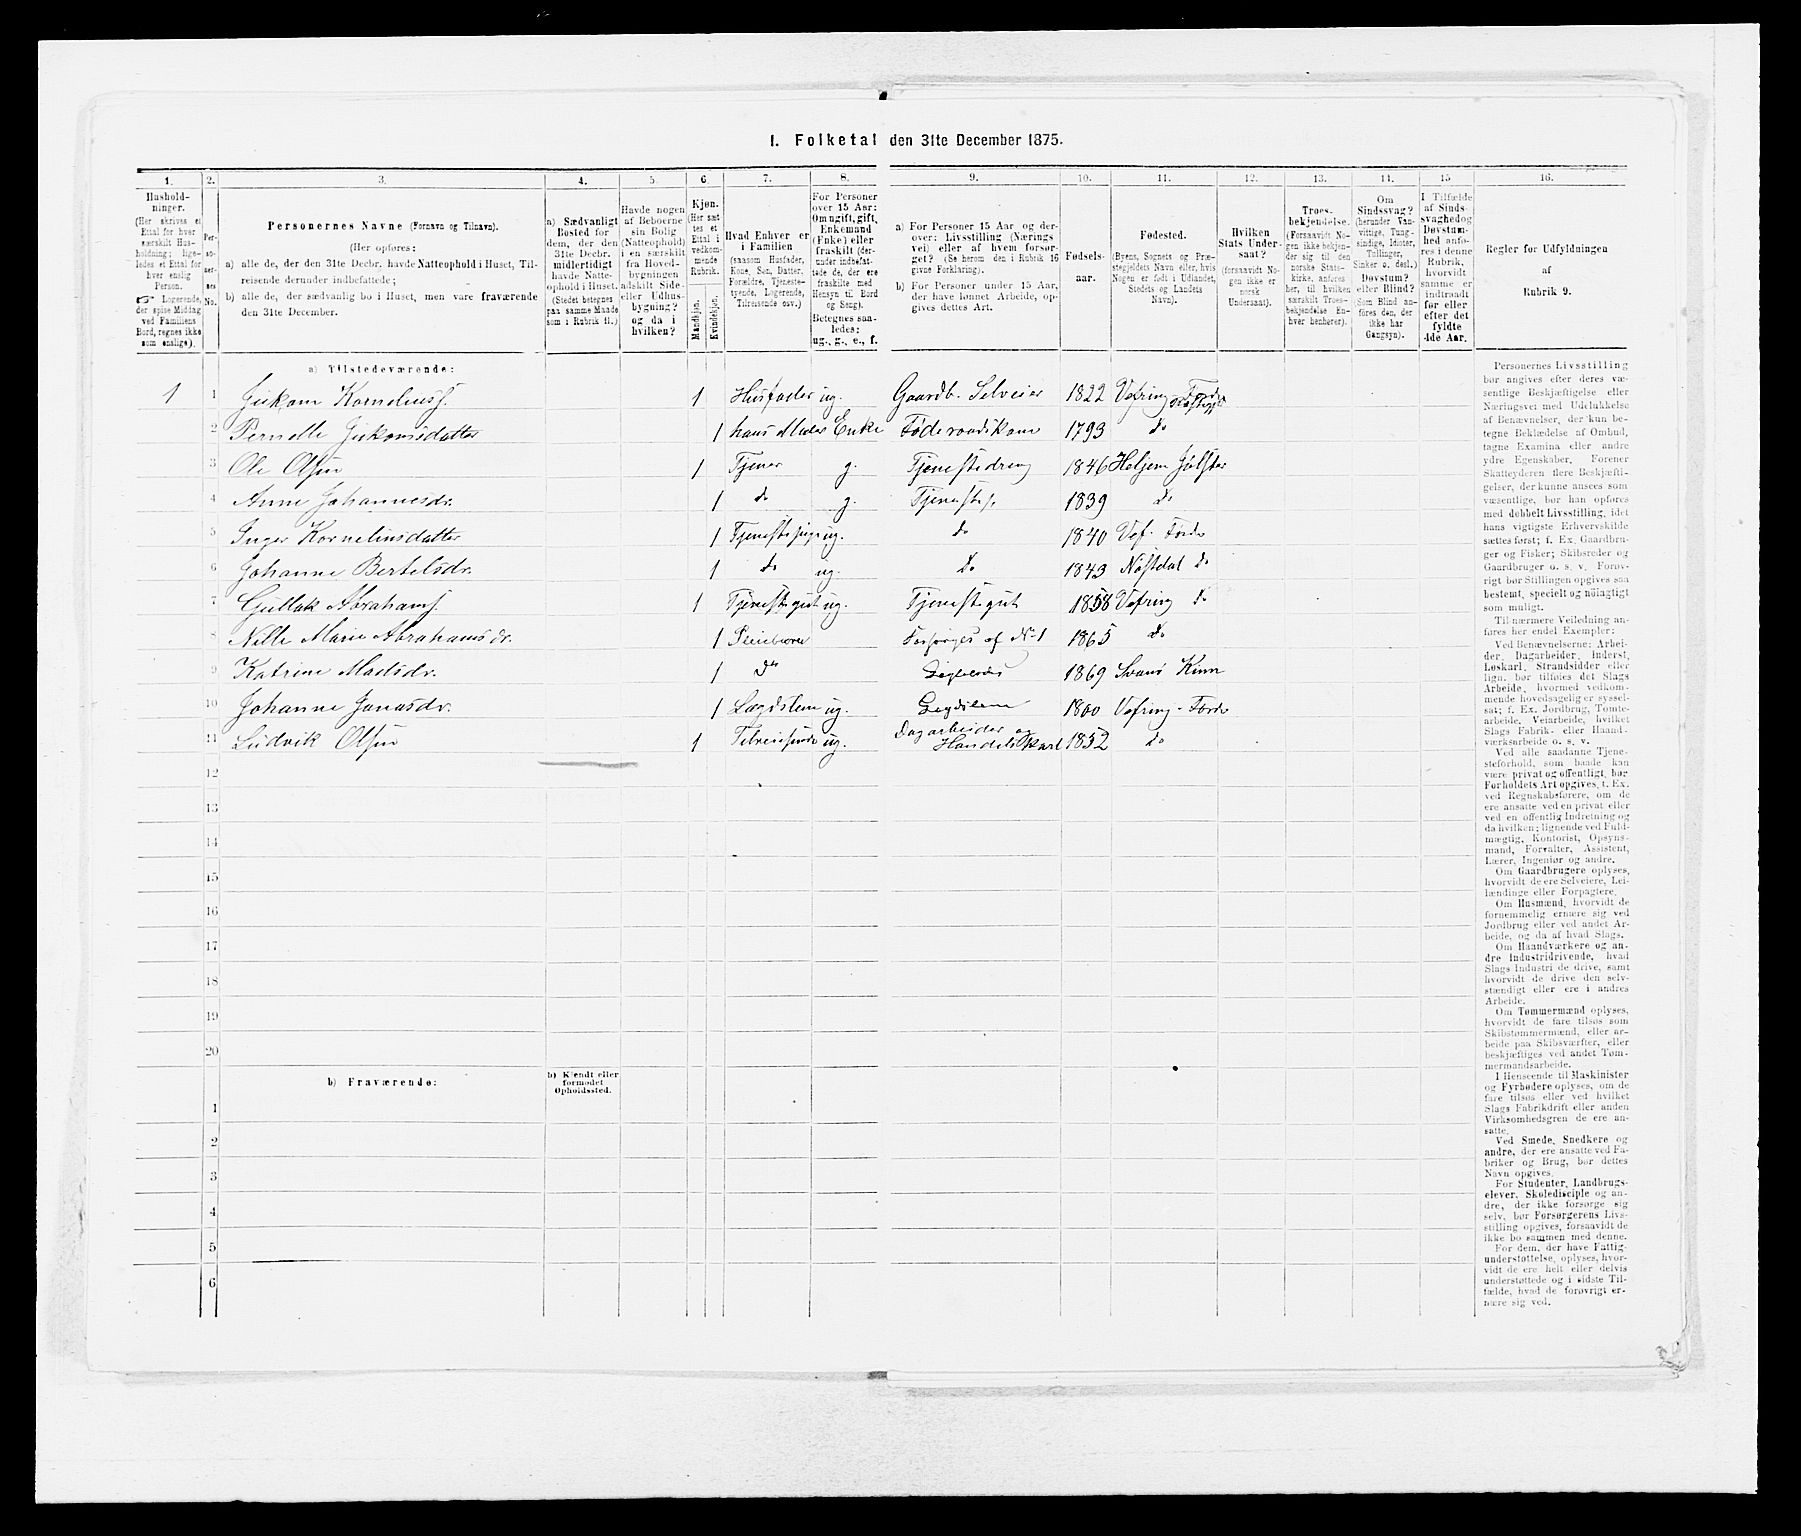 I. Folketal den 31te December 1875.
1. 2. 3. 4. 5. 6. 7. 8. 9. 10. 11. 12. 13. 14. 15 16.
Husholdninger.
(Her skrives et
Ettal for hver
særskilt Husholdning; ligeledes
et Ettal for
hver enslig
Person.
☞ Logerende,
der spise Middag
ved Familiens
Bord, regnes ikke
som enslige).
Personernes No.
Personernes Navne (Fornavn og Tilnavn).
(Her opføres:
a) alle de, der den 31te Decbr. havde Natteophold i Huset, Tilreisende derunder indbefattede;
b) alle de, der sædvanlig bo i Huset, men vare fraværende
den 31te December.
a) Sædvanligt
Bosted for
dem, der den
31te Decbr.
midlertidigt
havde Natteophold i Huset.
(Stedet betegnes
paa samme Maade
som i Rubrik 11.)
Havde nogen
af Beboerne
sin Bolig
(Natteophold)
i en særskilt
fra Hovedbygningen
adskilt Side-
eller Udhusbygning?
og da i
hvilken?
Kjøn.
(Her sættes et
Ettal i
vedkommende
Rubrik.
Mandkjøn.
Kvindekjøn.
Hvad Enhver er
i Familien
(saasom Husfader,
Kone, Søn, Datter,
Forældre, Tjenestetyende, Logerende,
Tilreisende osv.)
For Personer
over 15 Aar:
Om ugift, gift,
Enkemand
(Enke) eller
fraskilt (derunder indbefattede de, der ere
fraskilte med
Hensyn til Bord
og Seng).
Betegnes saaledes:
ug., g., e., f.
a) For Personer 15 Aar og derover: Livsstilling (Næringsvei) eller af hvem forsørget? (Se herom den i Rubrik 16
givne Forklaring).
b) For Personer under 15 Aar,
der have lønnet Arbeide, opgives dettes Art.
Fødselsaar.
Fødested.
(Byens, Sognets og Præstegjeldets Navn eller, hvis
Nogen er født i Udlandet,
Stedets og Landets
Navn).
Hvilken
Stats Undersaat?
(forsaavidt Nogen ikke er
norsk
Undersaat).
Troesbekjendelse.
(Forsaavidt Nogen ikke bekjender sig til den
norske Statskirke, anføres
her, til hvilken
særskilt Troesbekjendelse Enhver henhører).
Om
Sindssvag?
(herunder Vanvittige, Tungsindige, Idioter,
Tullinger,
Sinker o. desl.)
Døvstum?
eller Blind?
(Som Blind anføres den, der
ikke har
Gangsyn).
I Tilfælde
af Sindssvaghed og
Døvstumhed anføres i denne
Rubrik,
hvorvidt
samme er
indtraadt
før eller
efter det
fyldte
4de Aar.
Regler for Udfyldningen
af
Rubrik 9.
a) Tilstedeværende:
1 1 Jukam Korneliuss. 1 Husfader ug. Gaardb. Selveier 1822 Vefring Førde
2 Pernelle Jukamsdatter 1 hans Moder Enke Føderaadskone 1793 do
3 Ole Olsen 1 Tjener g. Tjenestedreng 1846 Heljem Jølster
4 Anne Johannesdr. 1 do g. Tjenestep. 1839 do
5 Inger Korneliusdatter 1 Tjenestepige ug. do 1840 Vef. Førde
6 Johanne Bertelsdr. 1 do ug. do 1843 Nøstdal do
7 Gullak Abrahams. 1 Tjenestegut ug. Tjenestegut 1858 Vefring do
8 Nille Marie Abrahamsdr. 1 Pleiebarn Forsørges af No 1 1865 do
9 Katrine Madsdr. 1 do 1869 Svanø Kinn
10 Johanne Jonasdr. 1 Lægdslem ug. Lægdslem 1800 Vefring - Førde
11 Ludvik Olsen 1 Tilreisende ug. Dagarbeider og
Handelskarl 1852 do
12
13
14
15
16
17
18
19
20
b) Fraværende:
b) Kjendt eller
formodet
Opholdssted.
1
2
3
4
5
6
Personernes Livsstilling
bør angives efter deres væsentlige Beskjæftigelse eller
Næringsvei med Udelukkelse
af Benævnelser, der kun betegne Beklædelse af Ombud,
tagne Examina eller andre
ydre Egenskaber. Forener
Skatteyderen flere Beskjæftigelser, der kunne ansees som
væsentlige, bør han opføres
med dobbelt Livsstilling, idet
hans vigtigste Erhvervskilde
sættes først; f. Ex. Gaardbruger og Fisker; Skibsreder og
Gaardbruger o. s. v. Forøvrigt bør Stillingen opgives saa
bestemt, specielt og nøiagtigt
som muligt.
Til nærmere Veiledning anføres her endel Exempler:
Ved Benævnelserne: Arbeider, Dagarbeider, Inderst,
Løskarl, Strandsidder eller
lign. bør tilføies det Slags
Arbeide, hvormed vedkommende hovedsagelig er sysselsat; f. Ex. Jordbrug, Tomtearbeide, Veiarbeide, hvilket
Slags Fabrik- eller Haandværksarbeide o. s. v.
Ved alle saadanne Tjenesteforhold, som baade kan
være privat og offentligt, bør
Forholdets Art opgives, t. Ex.
ved Regnskabsførere, om de
ere ansatte ved en privat eller
ved en offentlig Indretning og
da hvilken; lignende ved Fuldmægtig, Kontorist, Opsynsmand, Forvalter, Assistent,
Lærer, Ingeniør og andre.
Om Gaardbrugere oplyses,
hvorvidt de ere Selveiere, Leilændinge eller Forpagtere.
Om Husmænd, hvorvidt de
fornemmelig ernære sig ved
Jordbrug eller ved andet Arbeide, og da af hvad Slags.
Om Haandværkere og andre Industridrivende, hvad
Slags Industri de drive, samt
hvorvidt de drive den selvstændigt eller ere i andres
Arbeide.
Om Tømmermænd oplyses,
hvorvidt de fare tilsøs som
Skibstømmermænd, eller arbeide paa Skibsværfter, eller
beskjæftiges ved andet Tømmermandsarbeide.
I Henseende til Maskinister
og Fyrbødere oplyses, om de
fare tilsøs eller ved hvilket
Slags Fabrikdrift eller anden
Virksomhedsgren de ere ansatte.
Ved Smede, Snedkere og
andre, der ere ansatte ved Fabriker og Brug, bør dettes
Navn opgives.
For Studenter, Landbrugselever, Skoledisciple og andre, der ikke forsørge sig
selv, bør Forsørgerens Livsstilling opgives, forsaavidt de
ikke bo sammen med denne.
For dem, der have Fattigunderstøttelse, oplyses, hvorvidt de ere helt eller delvis
understøttede og i sidste Tilfælde, hvad de forøvrigt ernære sig ved.